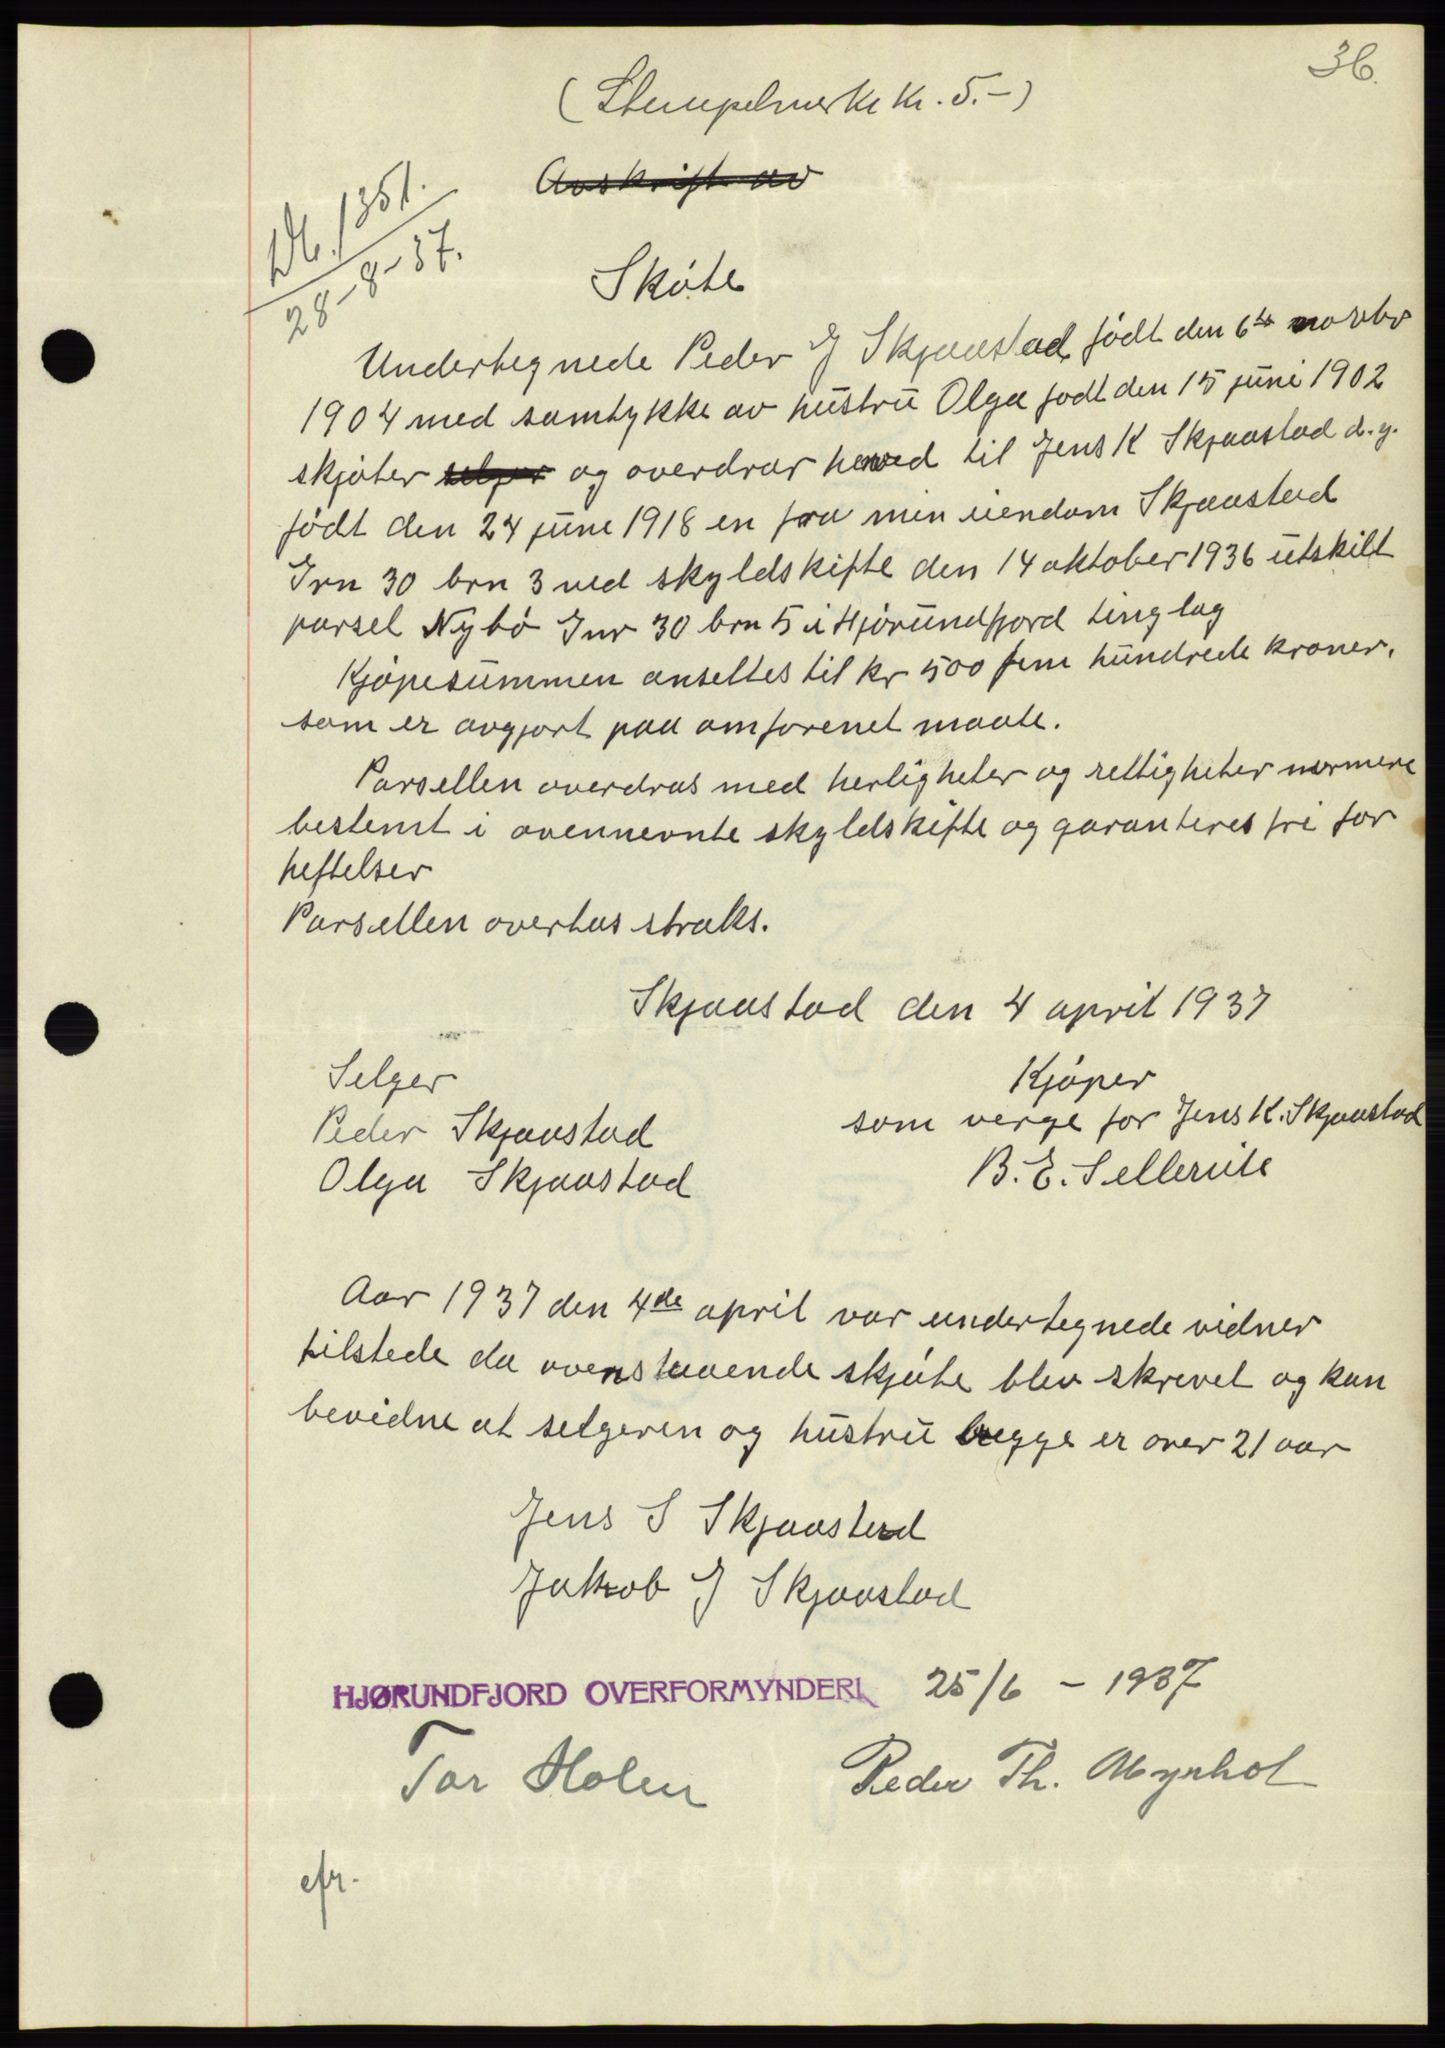 36.
(Stempelmerke kr. 5.-)
Avskrift av
Db. 1351.
28-8-37.
Skøte
Undertegnede Peder J Skjaastad født den 6te novbr
1904 med samtykke av hustru Olga født den 15 juni 1902
skjøter selger og overdrar herved til Jens K Skjaastad d.y.
født den 24 june 1918 en fra min eiendom Skjaastad
Grn 30 brn 3 ved skyldskifte den 14 oktober 1936 utskilt
parsel Nybø Gnr 30 brn 5 i Hjørundfjord tinglag
Kjøpesummen ansettes til kr 500 fem hundrede kroner.
som er avgjort paa omforenet maate.
Parsellen overdras med herligheter og rettigheter nærmere
bestemt i ovennevnte skyldskifte og garanteres fri for
heftelser
Parsellen overtas straks.
Skjaastad den 4 april 1937
Selger
Kjøper
Peder Skjaastad
som verge for Jens K. Skjaastad
Olga Skjaastad
B. E. Sellerite
Aar 1937 den 4de april var undertegnede vidner
tilstede da ovenstaaende skjøte blev skrevet og kan
bevidne at selgeren og hustru begge er over 21 aar
Jens S Skjaastad
Jakob J Skjaastad
HJØRUNDFJORD OVERFORMYNDERI 25/6 - 1937
Tor Holen
Peder Th.
efr.